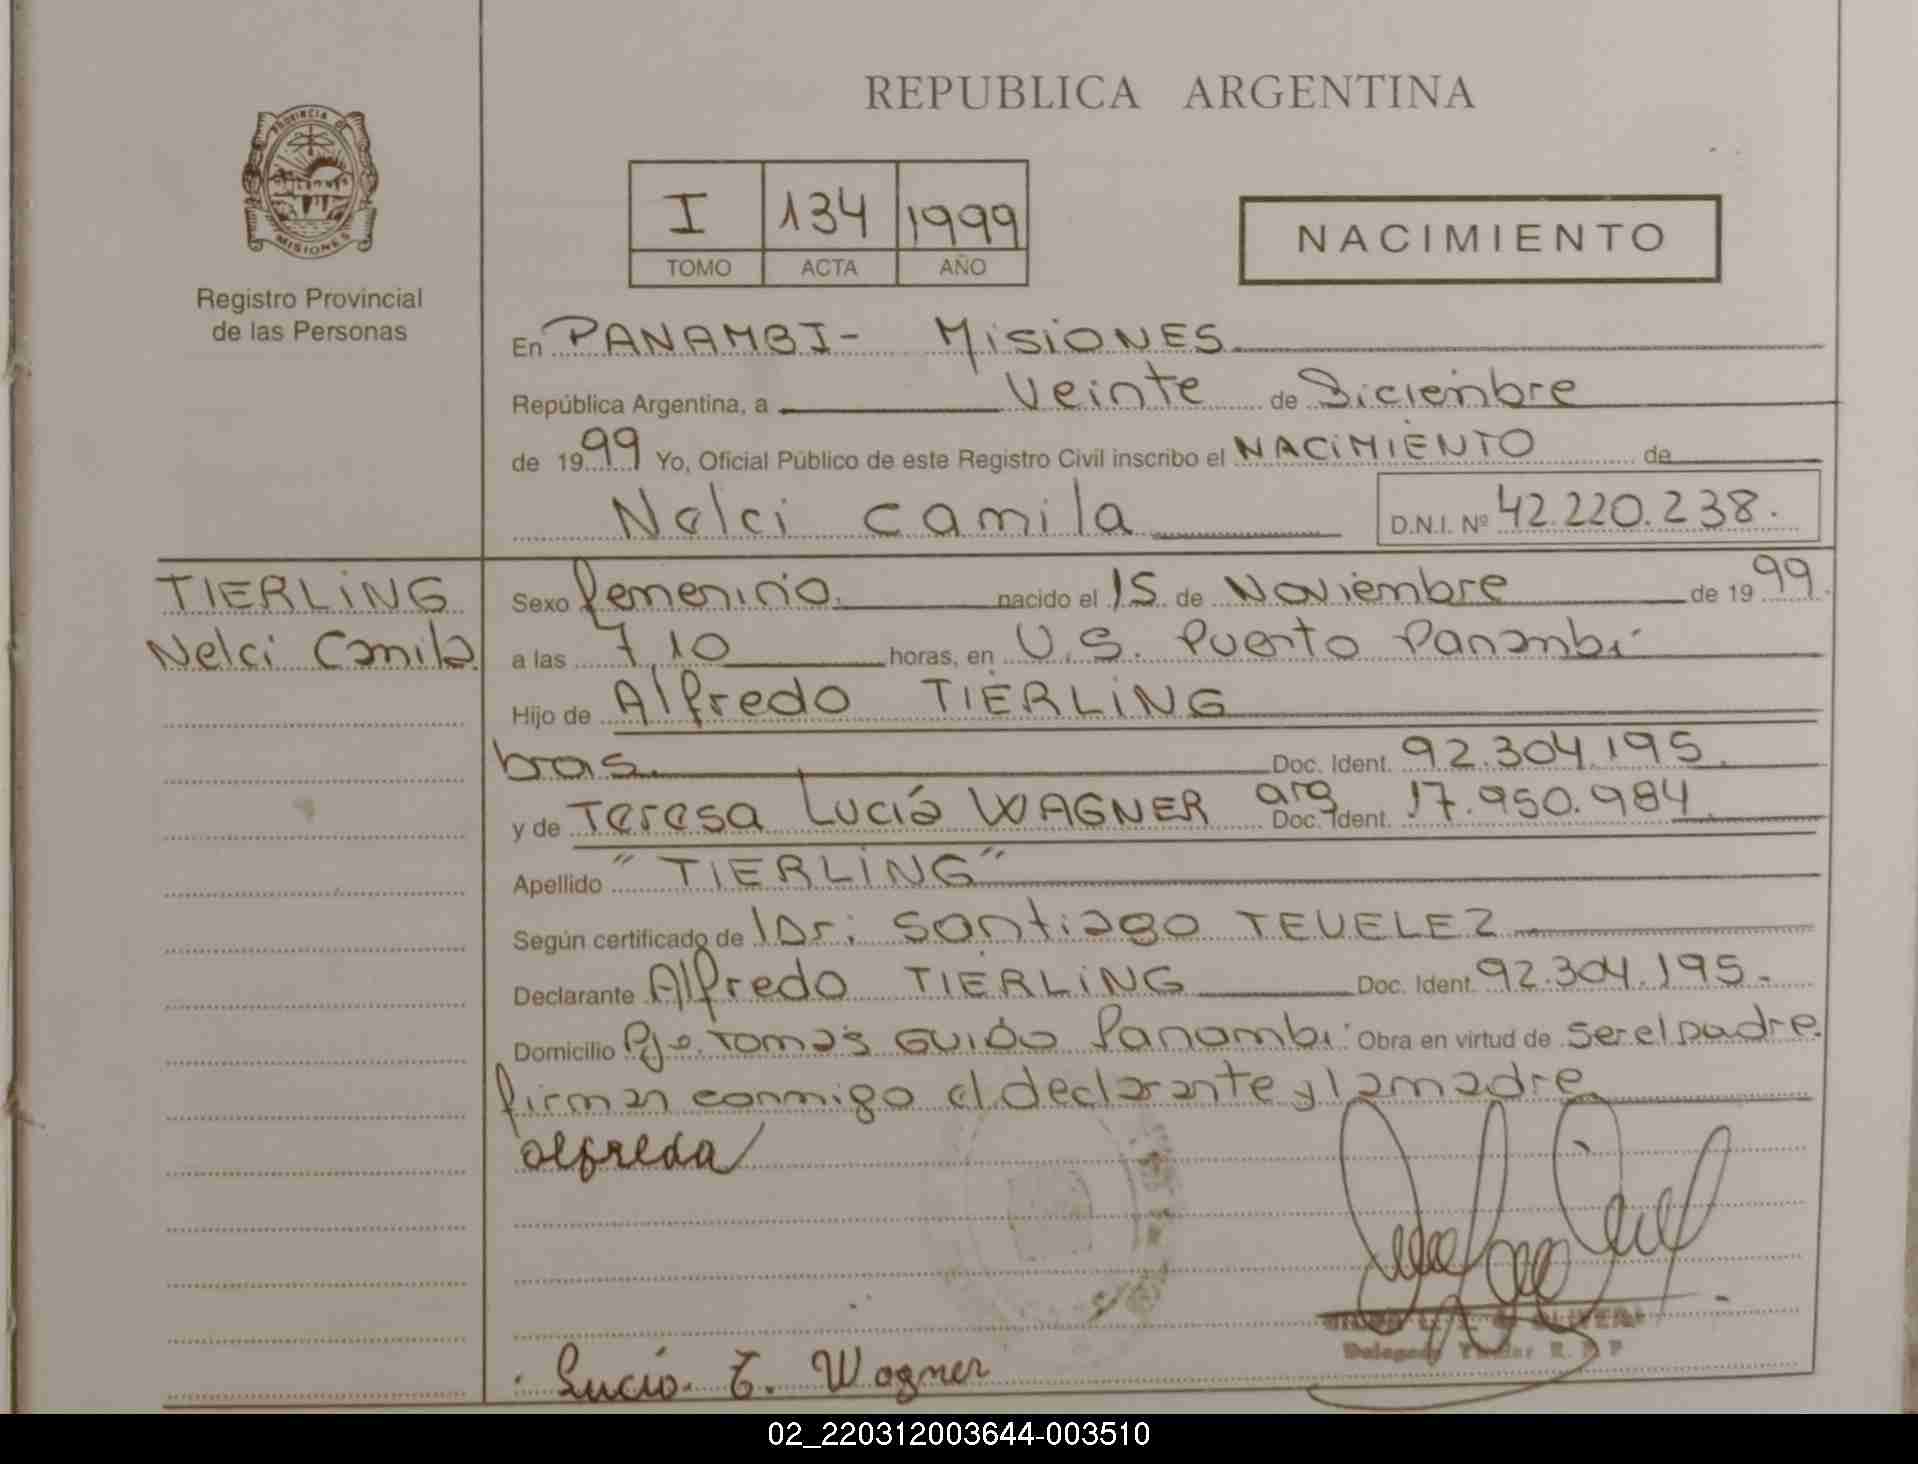 REPUBLICA ARGENTINA
PROVINCIA DE
MISIONES
Registro Provincial
de las Personas
I 134 1999
TOMO ACTA AÑO
NACIMIENTO
En PANAMBI- MiSiONES
República Argentina, a Veinte de Diciembre
de 1999 Yo, Oficial Público de este Registro Civil inscribo el NACiMiENTO de
Nelci Camila D.N.I. Nº 42.220.238.
TIERLiNG
Nelci Camila
Sexo femenino. nacido el 15 de Noviembre de 1999.
a las 7,10 horas, en U.S. Puerto Panambi
Hijo de Alfredo TIERLiNG
bras. Doc. Ident. 92.304.195.
y de Teresa Lucía WAGNER arg Doc. Ident. 17.950.984.
Apellido "TIERLiNG"
Según certificado de Dr: Santiago TEVELEZ
Declarante Alfredo TIERLiNG Doc. Ident. 92.304.195.
Domicilio Pje. Tomás GUiDO Panambi Obra en virtud de ser el padre.
firman conmigo el declarante y la madre.
alfreda
Lucia. T. Wagner
Delegado Titular R. P. P
02_220312003644-003510